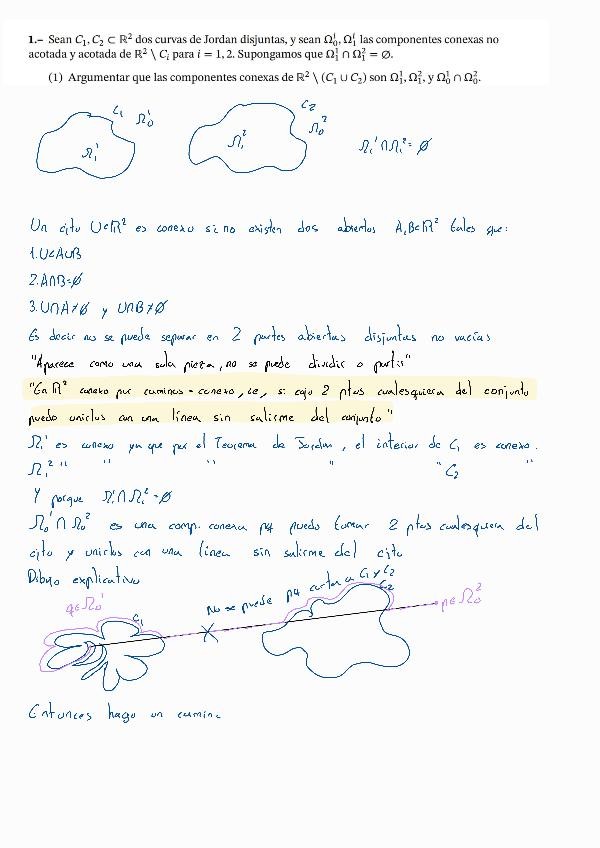 1.– Sean C₁, C₂ ⊂ ℝ² dos curvas de Jordan disjuntas, y sean Ω₀ⁱ, Ω₁ⁱ las componentes conexas no
acotada y acotada de ℝ² \ Cᵢ para i = 1, 2. Supongamos que Ω₁¹ ∩ Ω₁² = ∅.
(1) Argumentar que las componentes conexas de ℝ² \ (C₁ ∪ C₂) son Ω₁¹, Ω₁², y Ω₀¹ ∩ Ω₀².
C₁ Ω₀¹ Ω₁¹
C₂ Ω₀² Ω₁²
Ω₁¹ ∩ Ω₁² = ∅
Un cjto U⊂ℝ² es conexo si no existen dos abiertos A,B⊂ℝ² tales que:
1. U⊂A∪B
2. A∩B=∅
3. U∩A≠∅ y U∩B≠∅
Es decir no se puede separar en 2 partes abiertas disjuntas no vacías
"Aparece como una sola pieza, no se puede dividir o partir"
"En ℝ² conexo por caminos = conexo, ie, si cojo 2 ptos cualesquiera del conjunto
puedo unirlos con una línea sin salirme del conjunto"
Ω₁¹ es conexo ya que por el Teorema de Jordan, el interior de C₁ es conexo.
Ω₁² " " " " " C₂ "
Y porque Ω₁¹ ∩ Ω₁² = ∅
Ω₀¹ ∩ Ω₀² es una comp. conexa pq puedo tomar 2 ptos cualesquiera del
cjto y unirlos con una línea sin salirme del cjto
Dibujo explicativo
q∈Ω₀¹ C₁ No se puede pq corta a C₁ y C₂ C₂ p∈Ω₀²
Entonces hago un camino